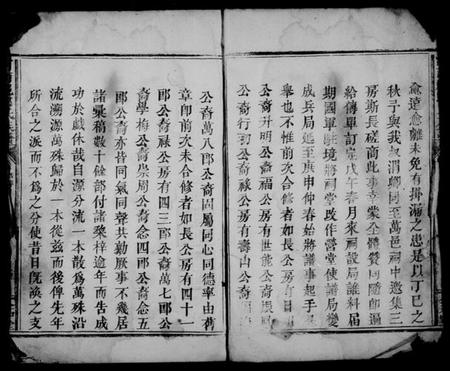 愈遠愈離未免有掛漏之患是以丁巳之
秋予與我叔渭卿同至萬邑祠中邀集三
房斯長磋商此事幸蒙全體贊同隨即遍
給傳單訂至戊午春月來祠設局誰料屆
期國軍駐境將祠堂改作營堂使議局變
成兵局延至庚申仲春始將議事起手
舉也不惟前次未合修者如長公房有日
公裔升明公嘉福公房有世能公裔
公裔行初公裔祿公房有壽山公裔
公裔萬八郎公裔固屬同心同德率由舊
章即前次未合修者如長公房有四十一
郎公裔祿公房有四三郎公裔萬七郎公
裔學梅公裔崇周公裔念四郎公裔念五
郎公裔亦皆同氣同聲共勷厥事不幾居
諸彙稿數十餘部付諸梨梓逾年而告成
功於戲休哉自源分流一本散為萬殊沿
流溯源萬殊歸於一本從茲而後俾先年
所合之派而不為之分使昔日既渙之支